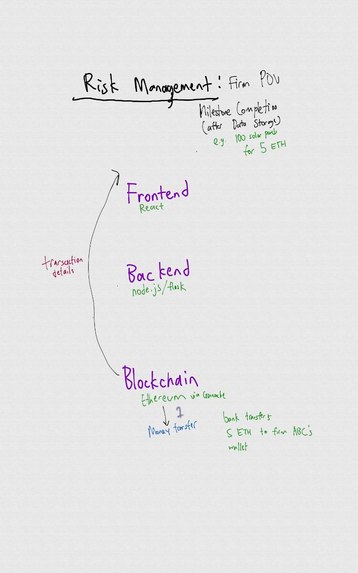 Risk Management: Firm POV
Milestone Completion
(after Data Storage)
e.g 100 solar panels
for 5 ETH
Frontend
React
transaction
details
Backend
node.js/flask
Blockchain
Ethereum via Ganache
1
Money transfer
bank transfers
5 ETH to firm ABC's
wallet